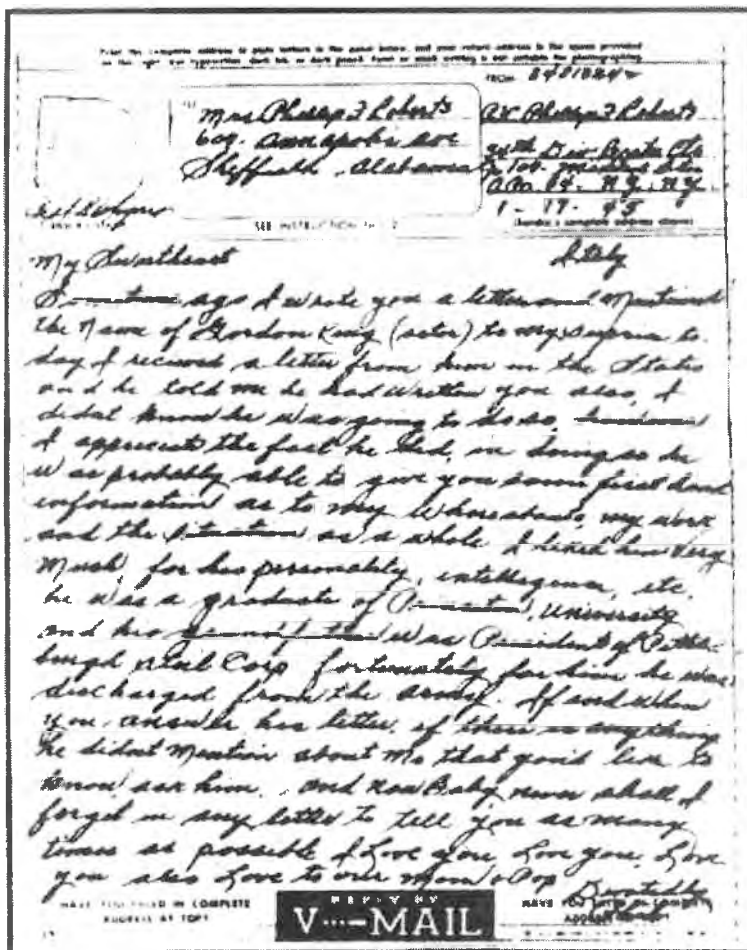 Print the complete address in plain letters in the panel below, and your return address in the space provided
on the right. Use typewriter, dark ink, or dark pencil. Faint or small writing is not suitable for photographing.
FROM
Mrs Phillip F Roberts
609. Annapolis ave
Sheffield, Alabama
Phillip F Roberts
34th Div
N.Y. N.Y.
1 - 17 - 45
(Sender's complete address above)
SEE INSTRUCTION NO. 2
My Sweetheart Italy
ago I wrote you a letter and Mentioned
the Name of Gordon King (actor) to my surprise to
day I received a letter from him in the States
and he told me he had written you also, I
didnt know he was going to do so,
I appreciate the fact he did, in doing so he
was probably able to give you some first hand
information as to my whereabouts, my work
and the situation as a whole. I liked him very
Much for his personality, intelligence, etc.
he was a graduate of Princeton, University
and his was President of Pitts-
burgh Steel Corp fortunately for him he was
discharged from the army. If and when
you answer his letter, if there is anything
he didnt mention about me that you'd like to
know, ask him. and now Baby, never shall I
forget in any letter to tell you as many
times as possible I Love you, Love you, Love
you also Love to our Mom & Pop Devotedly
HAVE YOU FILLED IN COMPLETE
ADDRESS AT TOP?
REPLY BY
V···—MAIL
HAVE YOU FILLED IN COMPLETE
ADDRESS